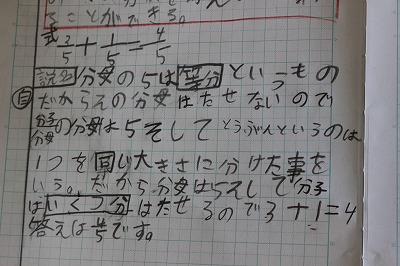 ることができる。
式 3/5+1/5=4/5
説明 分母の5は等分というもの
自 だからえの分母はたせないので
分子 分母の分母は5そしてとうぶんというのは
1つを同じ大きさに分けた事を
いう。だから分母は5そして分子
はいくつ分はたせるので3+1=4
答えは4/5です。